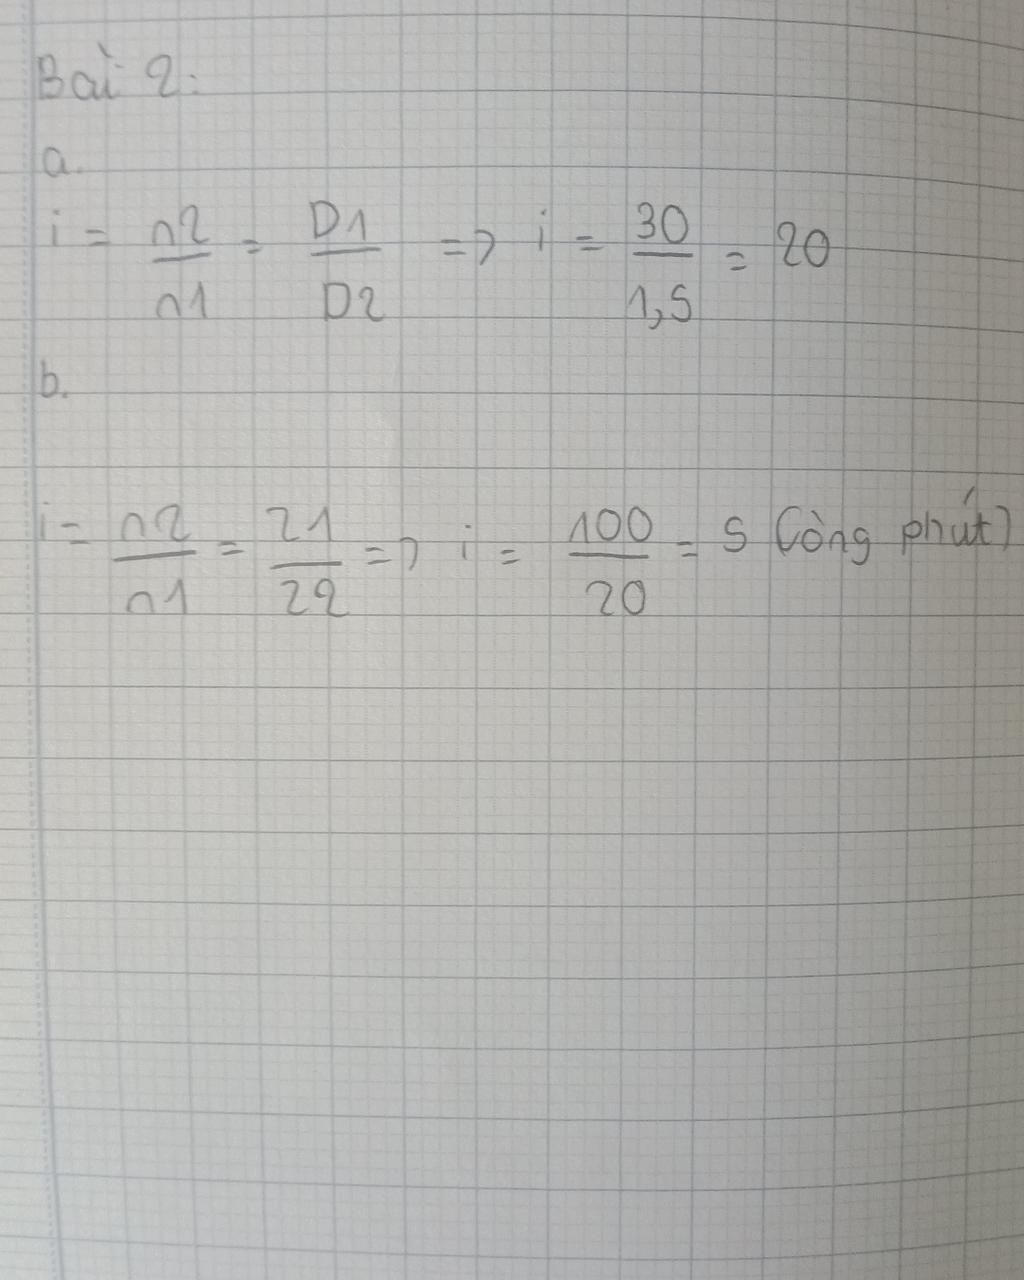 Bài 2:
a.
i = n2/n1 = D1/D2 => i = 30/1,5 = 20
b.
i = n2/n1 = Z1/Z2 => i = 100/20 = 5 (vòng phút)